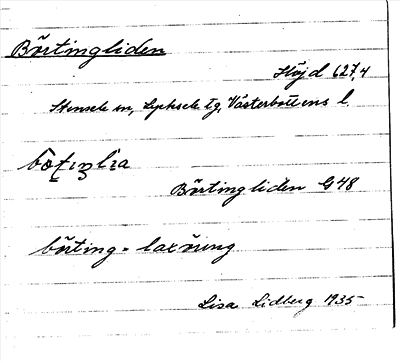 Börtingliden
Höjd 627,4
Stensele sn, Lycksele tg, Västerbottens l
Börtingliden G48
börting = laxöring
Lisa Lidberg 1935